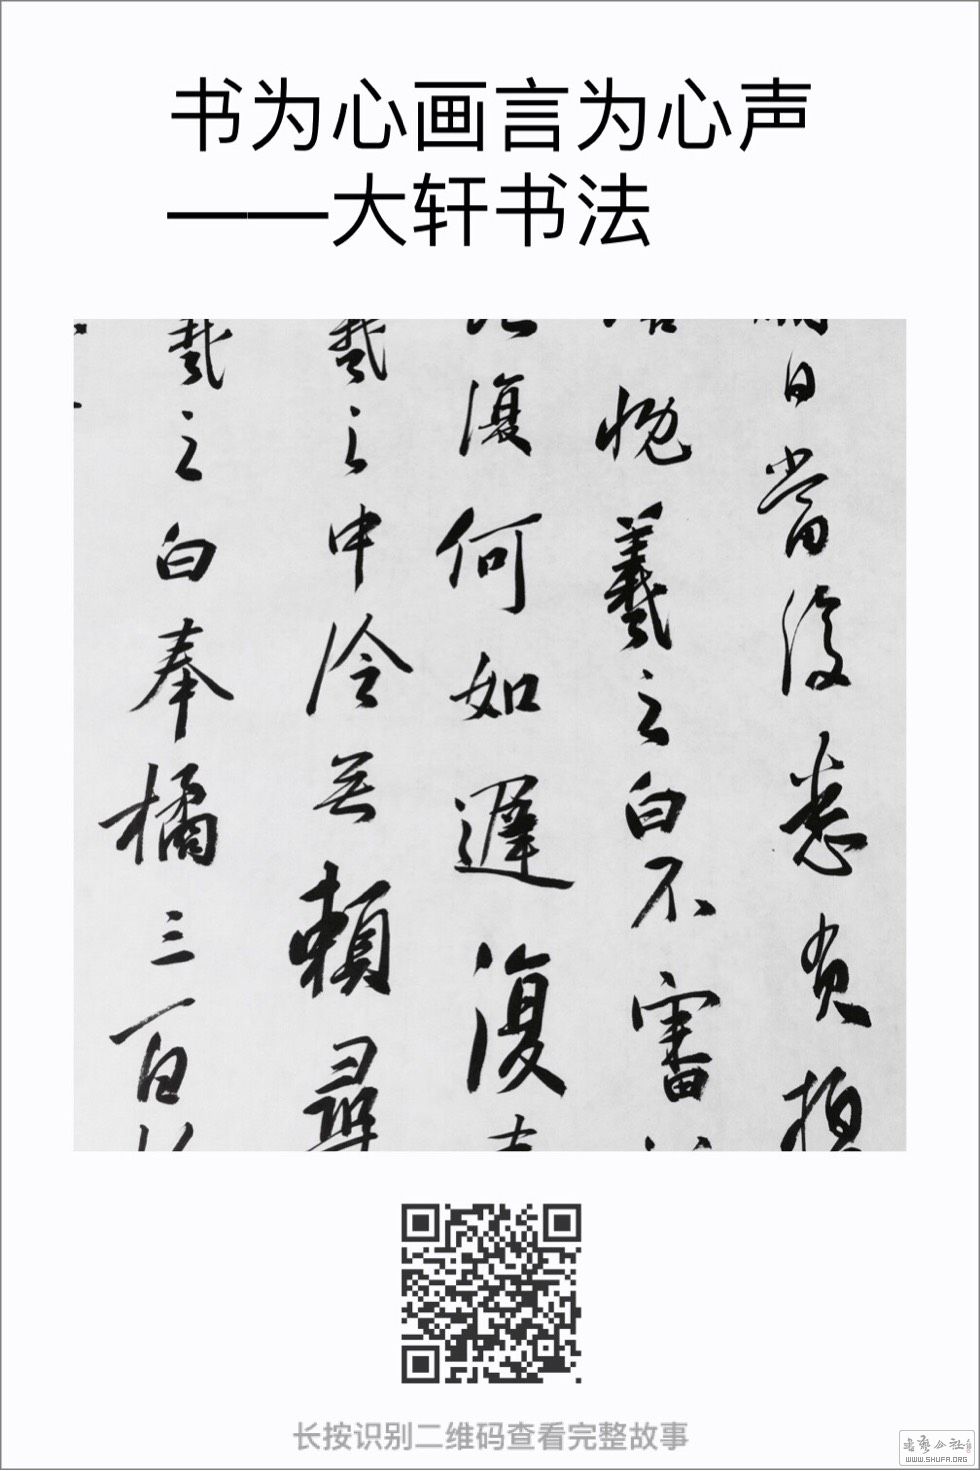 书为心画言为心声
——大轩书法
日當復悉貟
愧羲之白不審
復何如遲復
羲之中冷無賴尋
羲之白奉橘三百
长按识别二维码查看完整故事
书艺公社
WWW.SHUFA.ORG